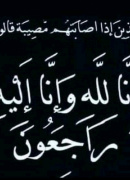 ذين إذا اصابتهم مصيبة قالو
نَّا لله وَإِنَّا إِليه
رَاجَعُونَ